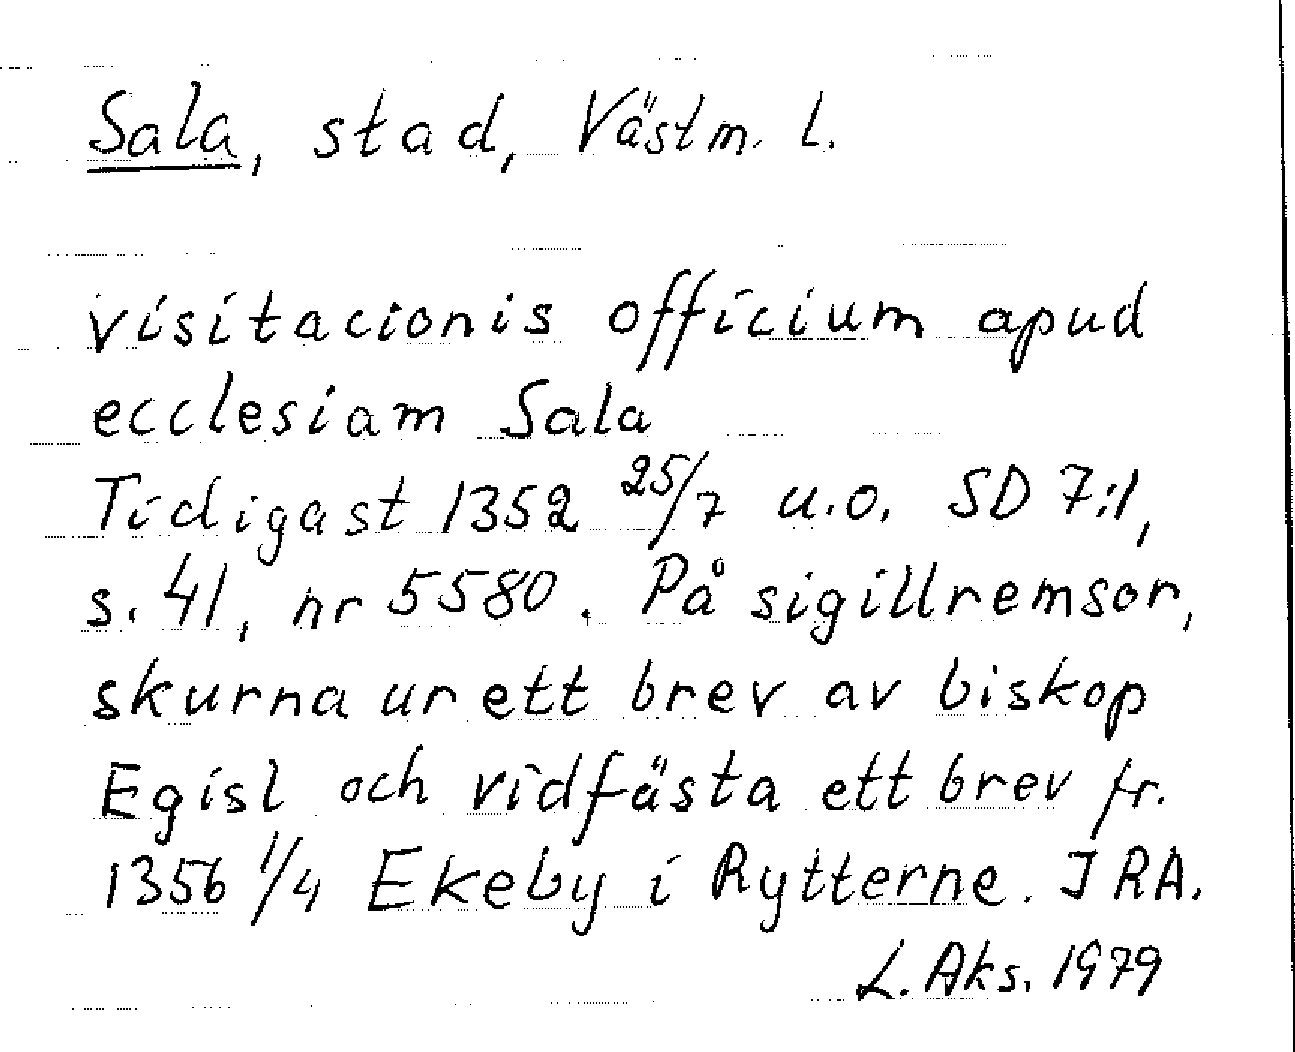 Sala, stad, Västm. L.
visitacionis officium apud
ecclesiam Sala
Tidigast 1352 25/7 u.o. SD 7:1,
s. 41, nr 5580. På sigillremsor,
skurna ur ett brev av biskop
Egisl och vidfästa ett brev fr.
1356 1/4 Ekeby i Rytterne. I RA.
L. Aks. 1979